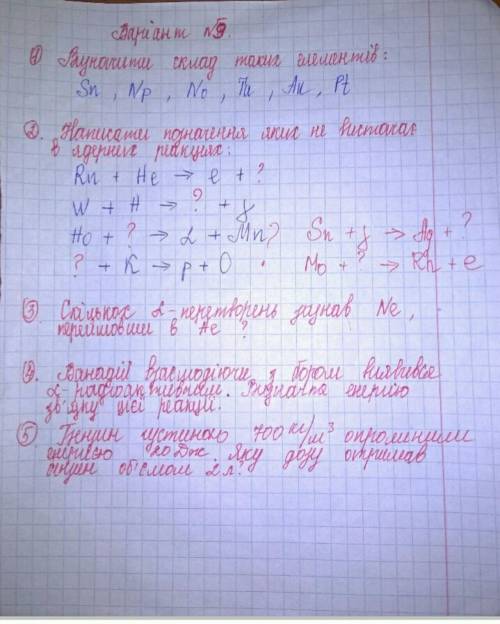 Варіант №9.
① Визначити склад таких елементів:
Sn, Np, No, Au, Pt
②. Написати позначення яких не вистачає
в ядерних реакціях:
Rn + He → e + ?
W + H → ? + γ
Ho + ? → α + Mn ? Sn + γ → Ag + ?
? + K → p + O . Mo + ? → Rh + e
③ Скількох α-перетворень зазнав Ne,
перейшовши в He ?
④. Ванадій взаємодіючи з бором виявився
α-радіоактивним. Визначте енергію
зв'язку цієї реакції.
⑤ Бензин густиною 700 кг/м³ опромінили
енергією 20 Дж. Яку дозу отримав
бензин об'ємом 2 л?